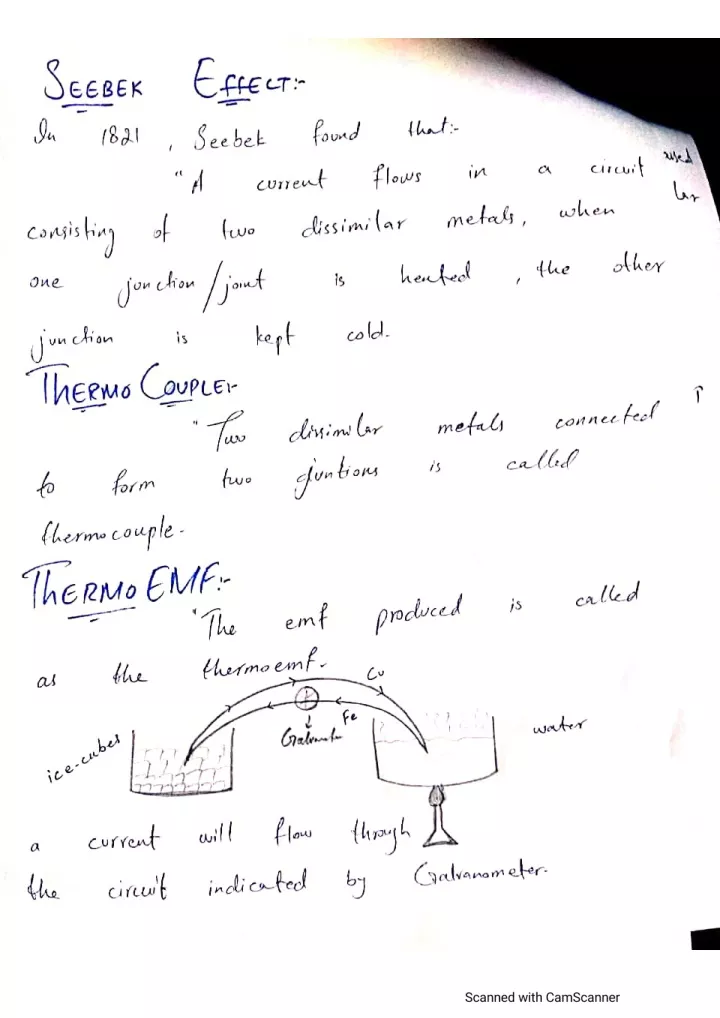 SEEBEK EFFECT:-
In 1821, Seebek found that:-
"A current flows in a circuit used
consisting of two dissimilar metals, when
one junction/joint is heated, the other
junction is kept cold.
THERMO COUPLE:-
"Two dissimilar metals connected
to form two juntions is called
thermocouple.
THERMO EMF:-
"The emf produced is called
as the thermoemf.
Cu
Fe
ice-cubes
water
a current will flow through
the circuit indicated by Galvanometer.
Scanned with CamScanner